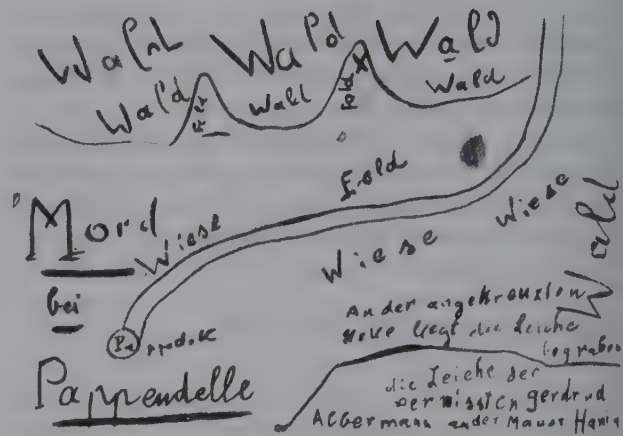 Wald Wald Wald
Wald Wald Wald
Feld
Mord
Wiese
Wiese
Wiese
bei
Wald
Pappendelle
An der angekreuzten
Stelle liegt die Leiche
begraben
die Leiche der
vermissten gerdrud
Albermann an der Mauer Haniel